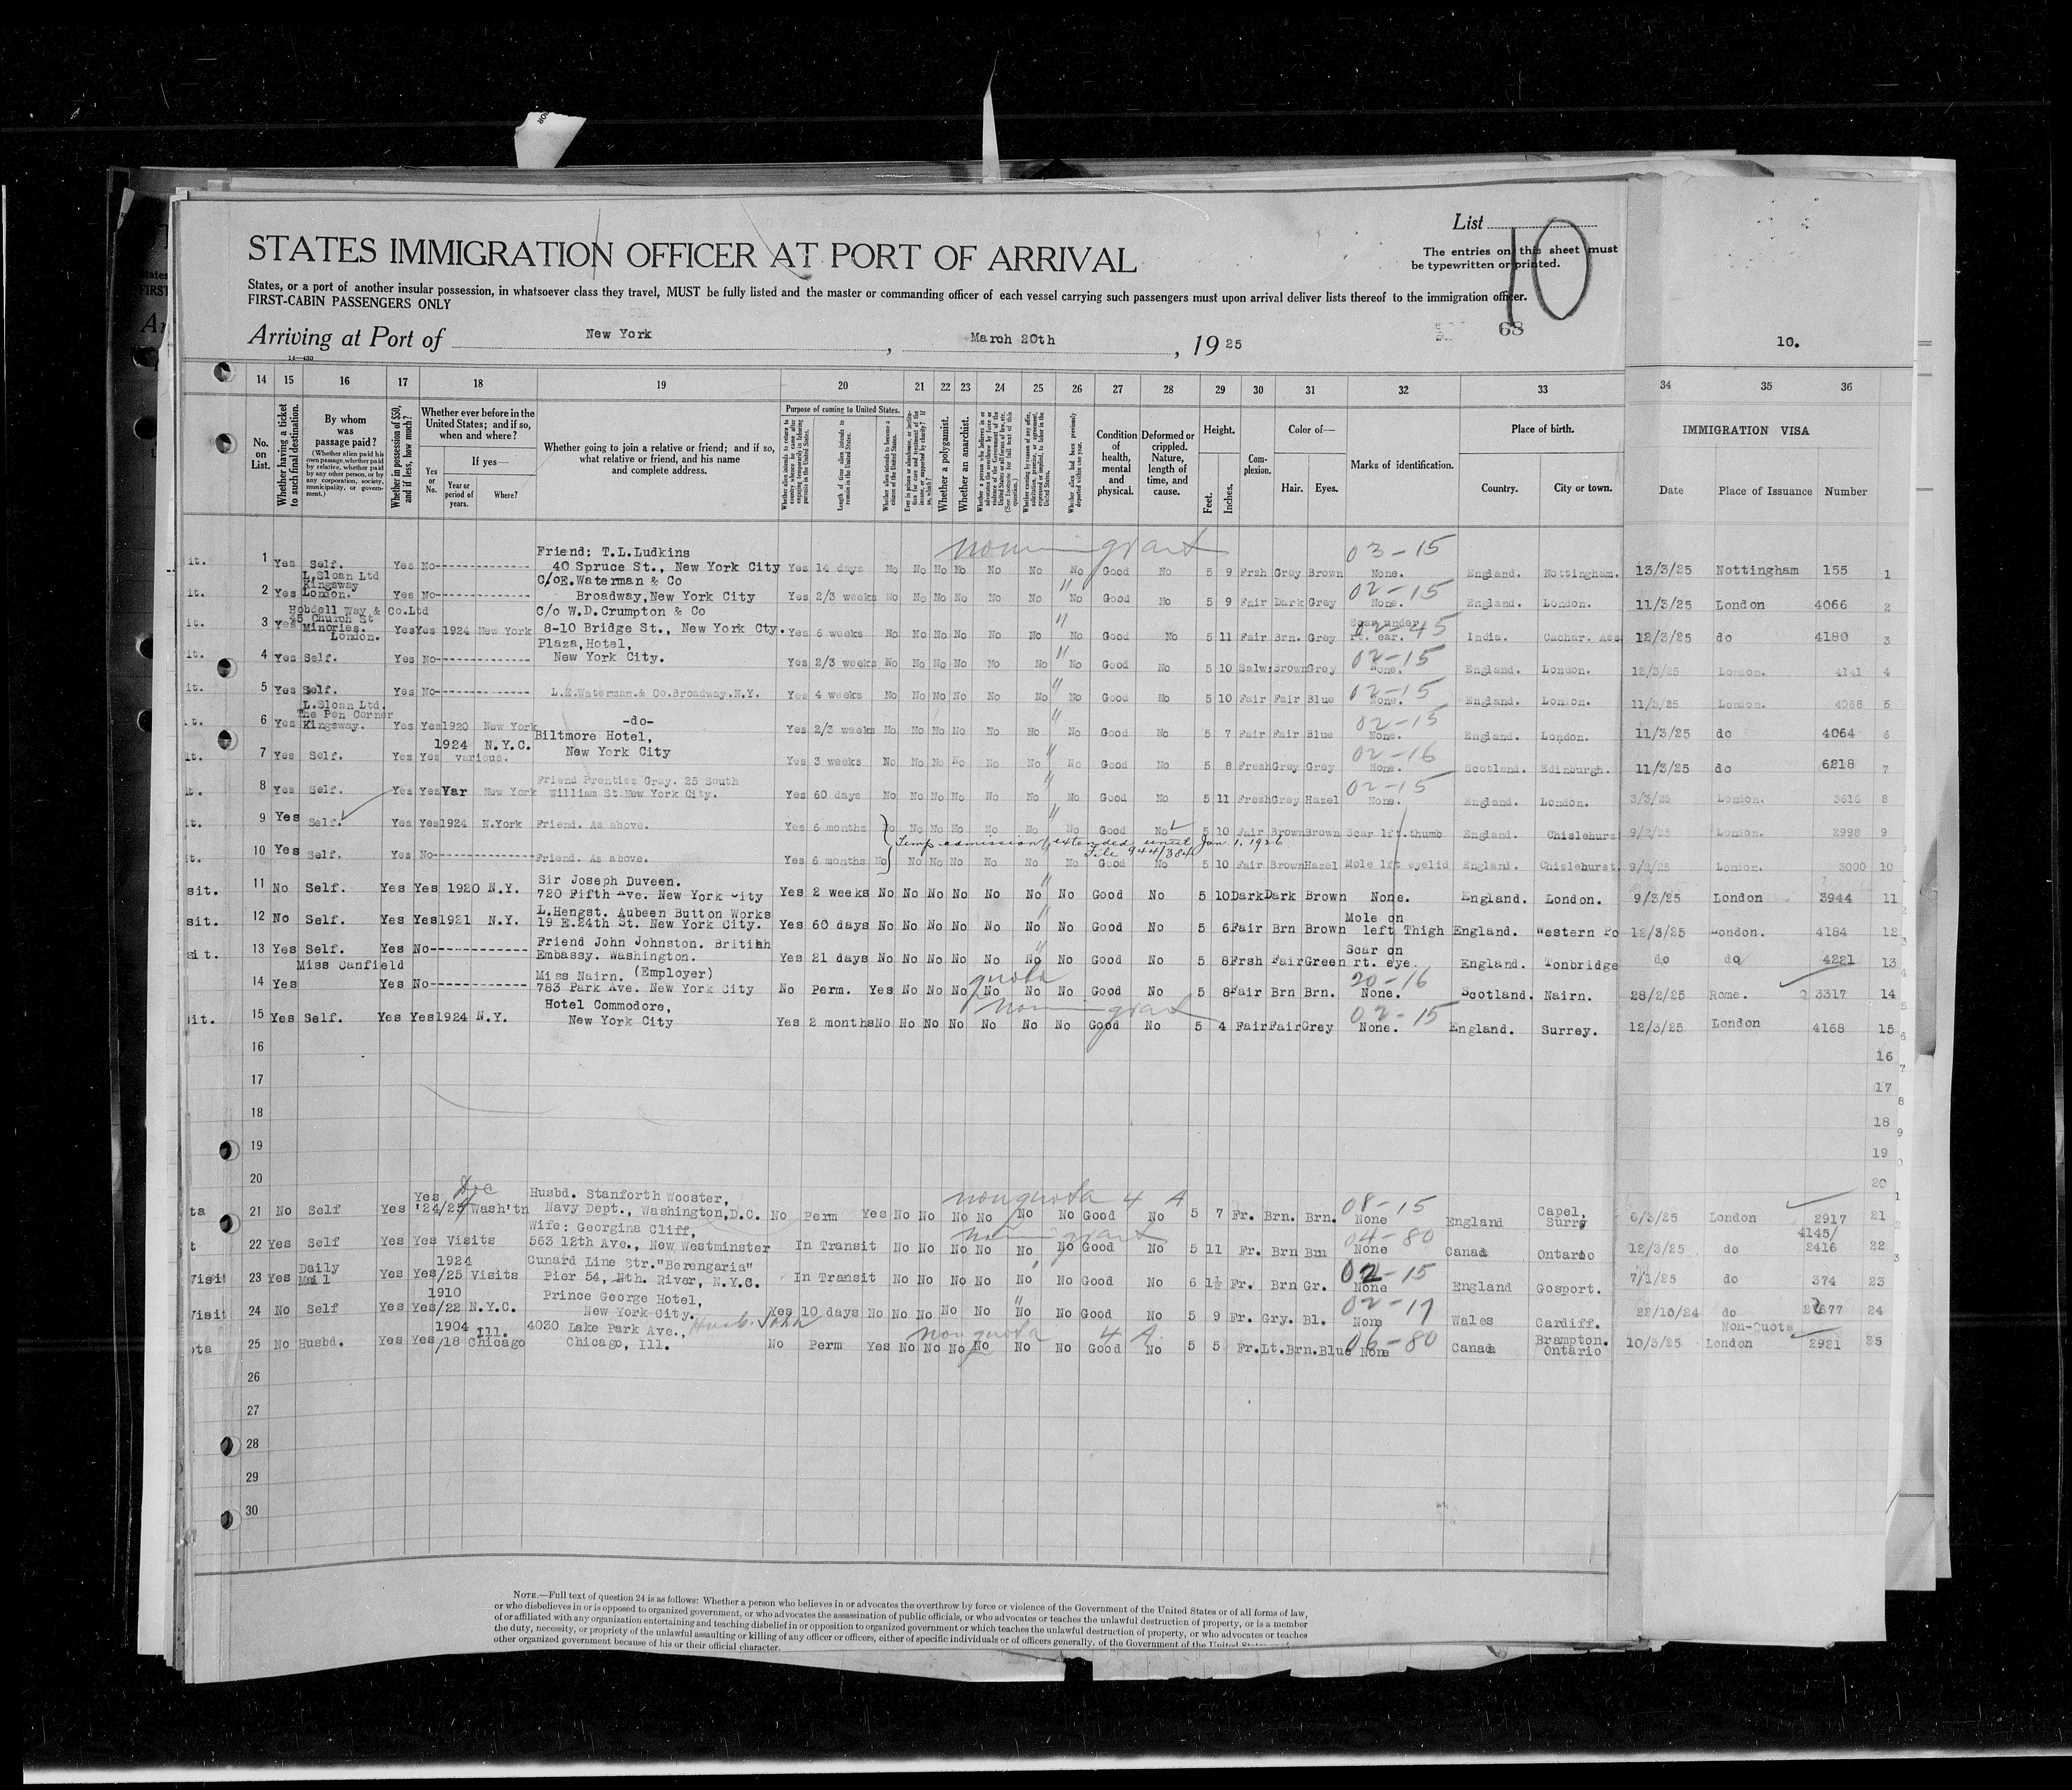 List
10
STATES IMMIGRATION OFFICER AT PORT OF ARRIVAL
The entries on this sheet must
be typewritten or printed.
States, or a port of another insular possession, in whatsoever class they travel, MUST be fully listed and the master or commanding officer of each vessel carrying such passengers must upon arrival deliver lists thereof to the immigration officer.
FIRST-CABIN PASSENGERS ONLY
68
Arriving at Port of New York, March 20th, 1925
10.
14—430
14 15 16 17 18 19 20 21 22 23 24 25 26 27 28 29 30 31 32 33 34 35 36
No. on List.
Whether having a ticket to such final destination.
By whom was passage paid?
(Whether alien paid his own passage, whether paid by relative, whether paid by any other person, or by any corporation, society, municipality, or government.)
Whether in possession of $50, and if less, how much?
Whether ever before in the United States; and if so, when and where?
Yes or No.
If yes—
Year or period of years.
Where?
Whether going to join a relative or friend; and if so, what relative or friend, and his name and complete address.
Purpose of coming to United States.
Length of time alien intends to remain in the United States.
Whether alien intends to become a citizen of the United States.
Whether a polygamist.
Whether an anarchist.
Condition of health, mental and physical.
Deformed or crippled. Nature, length of time, and cause.
Height.
Feet.
Inches.
Complexion.
Color of—
Hair.
Eyes.
Marks of identification.
Place of birth.
Country.
City or town.
IMMIGRATION VISA
Date Place of Issuance Number
nonimmigrant 03-15
it. 1 Yes Self. Yes No Friend: T.L.Ludkins 40 Spruce St., New York City Yes 14 days No No No No No No No Good No 5 9 Frsh Grey Brown None. England. Nottingham. 13/3/25 Nottingham 155 1
02-15
it. 2 Yes L.Sloan Ltd Kingsway London. Yes No C/oE.Waterman & Co Broadway,New York City Yes 2/3 weeks No No No No No " No No Good No 5 9 Fair Dark Grey None. England. London. 11/3/25 London 4066 2
it. 3 Yes Hobdell Way & Co.Ltd 45 Church St Minories. London. Yes Yes 1924 New York C/o W.D.Crumpton & Co 8-10 Bridge St., New York Cty. Yes 6 weeks No No No No No " No No Good No 5 11 Fair Brn. Grey Scar under rt. ear. 02-45 India. Cachar. Ass 12/3/25 do 4180 3
it. 4 Yes Self. Yes No Plaza,Hotel, New York City. Yes 2/3 weeks No No No No No " No No Good No 5 10 Salw: Brown Grey 02-15 None. England. London. 12/3/25 London. 4141 4
it. 5 Yes Self. Yes No L.E.Waterman.& Co.Broadway.N.Y. Yes 4 weeks No No No No No " No No Good No 5 10 Fair Fair Blue 02-15 None. England. London. 11/3/25 London. 4068 5
it. 6 Yes L.Sloan Ltd. The Pen Corner Kingsway. Yes Yes 1920 New York -do- Yes 2/3 weeks No No No No No " No No Good No 5 7 Fair Fair Blue 02-15 None. England. London. 11/3/25 do 4064 6
it. 7 Yes Self. Yes Yes 1924 N.Y.C. various. Biltmore Hotel, New York City Yes 3 weeks No No No No No " No No Good No 5 8 Fresh Grey Grey 02-16 None. Scotland. Edinburgh. 11/3/25 do 6218 7
it. 8 Yes Self. Yes Yes Var New York Friend Prentiss Gray. 25 South William St.New York City. Yes 60 days No No No No No " No No Good No 5 11 Fresh Grey Hazel 02-15 None. England. London. 3/3/25 London. 3616 8
it. 9 Yes Self. Yes Yes 1924 N.York Friend. As above. Yes 6 months No No No No No " No No Good No 5 10 Fair Brown Brown Scar lft.thumb England. Chislehurs 9/2/25 London. 2998 9
Temp admission extended until Jan. 1, 1926
File 944/384
it. 10 Yes Self. Yes No Friend. As above. Yes 6 months No No No No No No No Good No 5 10 Fair Brown Hazel Mole lft eyelid England. Chislehurst. 9/2/25 London. 3000 10
sit. 11 No Self. Yes Yes 1920 N.Y. Sir Joseph Duveen. 720 Fifth Ave. New York City Yes 2 weeks No No No No No " No No Good No 5 10 Dark Dark Brown None. England. London. 9/3/25 London 3944 11
sit. 12 No Self. Yes Yes 1921 N.Y. L.Hengst. Aubeen Button Works 19 E.24th St. New York City. Yes 60 days No No No No No " No No Good No 5 6 Fair Brn Brown Mole on left Thigh England. Western Po 12/3/25 London. 4184 12
sit. 13 Yes Self. Yes No Friend John Johnston. Britihh Embassy. Washington. Yes 21 days No No No No No " No No Good No 5 8 Frsh Fair Green Scar on rt. eye. England. Tonbridge do do 4221 13
14 Yes Miss Canfield Yes No Miss Nairn. (Employer) 783 Park Ave. New York City No Perm. Yes No No No quota No No No Good No 5 8 Fair Brn Brn. 20-16 None. Scotland. Nairn. 28/2/25 Rome. Q 3317 14
nonimmigrant
it. 15 Yes Self. Yes Yes 1924 N.Y. Hotel Commodore, New York City Yes 2 months No No No No No No No Good No 5 4 Fair Fair Grey 02-15 None. England. Surrey. 12/3/25 London 4168 15
16 16
17 17
18 18
19 19
20 20
nonquota 4 A
ta 21 No Self Yes Yes '24/25 Dec Wash'tn Husbd. Stanforth Wooster, Navy Dept., Washington,D.C. No Perm Yes No No No No No No Good No 5 7 Fr. Brn. Brn. 08-15 None England Capel, Surry 6/3/25 London 2917 21
nonimmigrant
t 22 Yes Self Yes Yes Visits Wife: Georgina Cliff, 563 12th Ave., New Westminster In Transit No No No No No No Good No 5 11 Fr. Brn Brn 04-80 None Canada Ontario 12/3/25 do 4145/ 2416 22
Visit 23 Yes Daily Mail Yes Yes 1924 /25 Visits Cunard Line Str."Berengaria" Pier 54, Nth. River, N.Y.C. In Transit No No No No No No Good No 6 1½ Fr. Brn Gr. 02-15 None England Gosport. 7/1/25 do 374 23
Visit 24 No Self Yes Yes 1910 /22 N.Y.C. Prince George Hotel, New York City. Yes 10 days No No No No No " No No Good No 5 9 Fr. Gry. Bl. 02-17 None Wales Cardiff. 22/10/24 do 24
nonquota 4 A
ota 25 No Husbd. Yes Yes 1904 /18 Ill. Chicago 4030 Lake Park Ave., Chicago, Ill. Husb. John No Perm Yes No No No No No No Good No 5 5 Fr. Lt.Brn. Blue 06-80 None Canada Brampton. Ontario 10/3/25 Non-Quota London 2921 25
26
27
28
29
30
NOTE.—Full text of question 24 is as follows: Whether a person who believes in or advocates the overthrow by force or violence of the Government of the United States or of all forms of law,
or who disbelieves in or is opposed to organized government, or who advocates the assassination of public officials, or who advocates or teaches the unlawful destruction of property, or is a member
of or affiliated with any organization entertaining and teaching disbelief in or opposition to organized government or which teaches the unlawful destruction of property, or who advocates or teaches
the duty, necessity, or propriety of the unlawful assaulting or killing of any officer or officers, either of specific individuals or of officers generally, of the Government of the United
other organized government because of his or their official character.